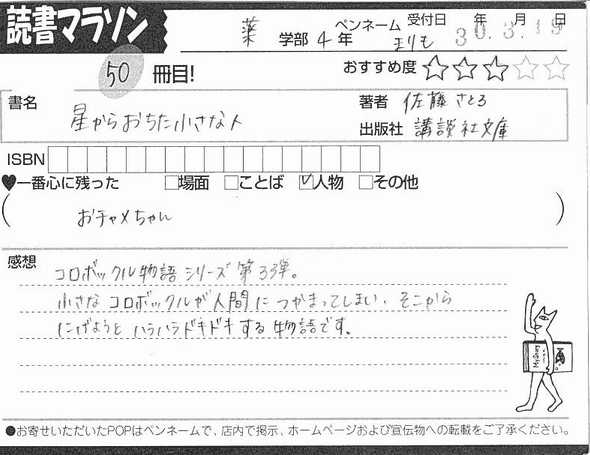 読書マラソン
薬 学部 4 年 ペンネーム まりも 受付日 30.3.19 年 月 日
50 冊目! おすすめ度 ★★★☆☆
書名 星からおちた小さな人
著者 佐藤さとる
出版社 講談社文庫
ISBN
♥一番心に残った □場面 □ことば ☑人物 □その他
( おチャメちゃん )
感想
コロボックル物語シリーズ第3弾。
小さなコロボックルが人間につかまってしまい、そこから
にげようとハラハラドキドキする物語です。
●お寄せいただいたPOPはペンネームで、店内で掲示、ホームページおよび宣伝物への転載をご了承ください。